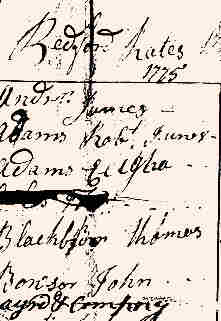 Bedford Rates
1775
Andrs. James
Adams Robt. Junr.
Adams Elisha
Blackburn Thomas
Bowsor John
& Company